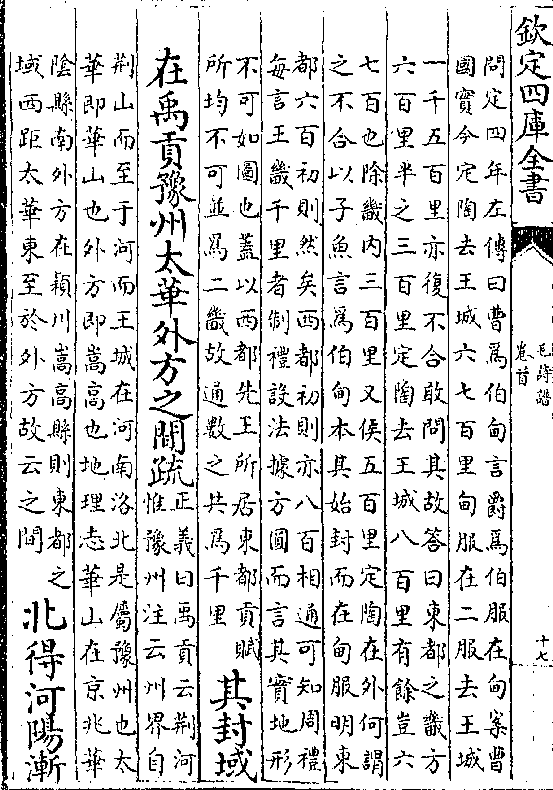 欽定四庫全書
毛詩譜
卷首
十七
問定四年左傳曰曹爲伯甸言爵爲伯服在甸案曹
國實今定陶去王城六七百里甸服在二服去王城
一千五百里亦復不合敢問其故答曰東都之畿方
六百里半之三百里定陶去王城八百里有餘豈六
七百也除畿内三百里又侯五百里定陶在外何謂
之不合以子魚言爲伯甸本其始封而在甸服明東
都六百初則然矣西都初則亦八百相通可知周禮
每言王畿千里者制禮設法據方圓而言其實地形
不可如圖也蓋以西都先王所居東都貢賦
所均不可並爲二畿故通數之共爲千里
其封域
在禹貢豫州太華外方之間疏
正義曰禹貢云荆河
惟豫州注云州界自
荆山而至于河而王城在河南洛北是屬豫州也太
華即華山也外方即嵩高也地理志華山在京兆華
陰縣南外方在穎川嵩高縣則東都之
域西距太華東至於外方故云之間
北得河陽漸